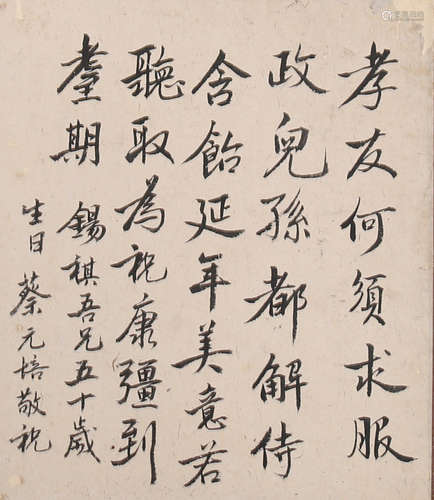 孝友何須求服
政兒孫都解侍
含飴延年美意若
聽取為祝康彊到
耋期 錫祺吾兄五十歲
生日 蔡元培敬祝